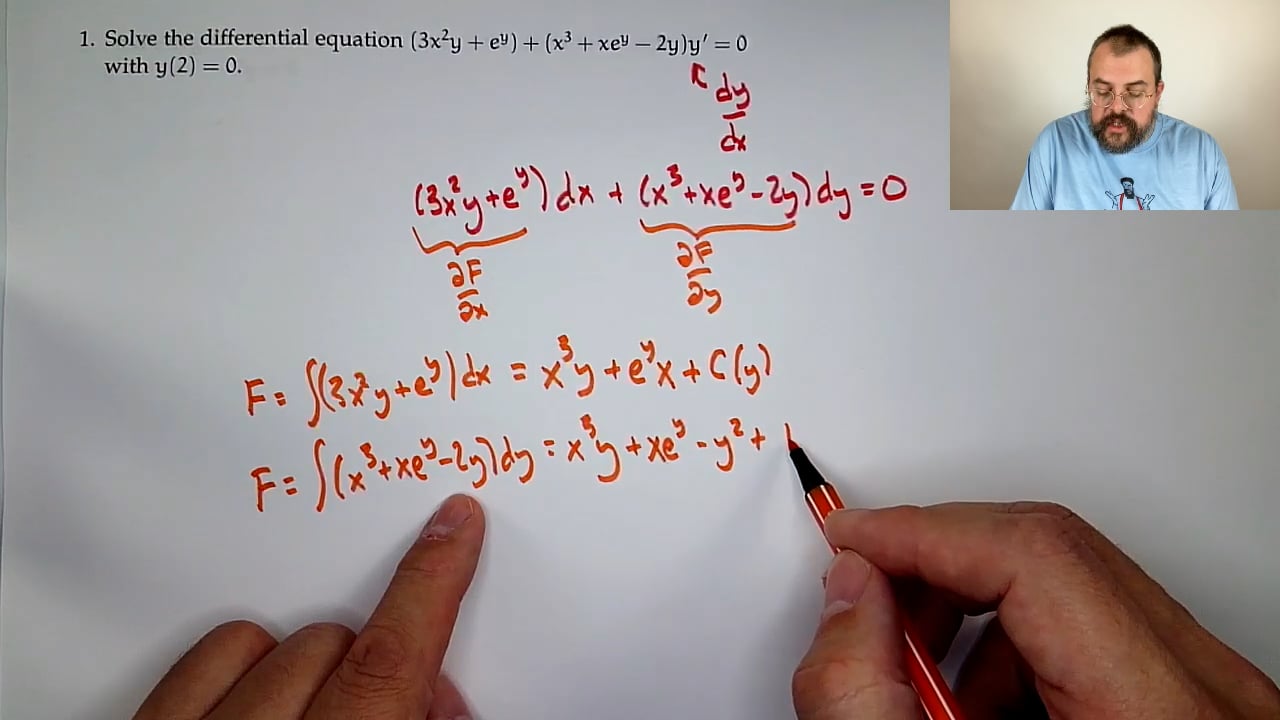 1. Solve the differential equation (3x²y + eʸ) + (x³ + xeʸ − 2y)y′ = 0
with y(2) = 0.
dy/dx
(3x²y+eʸ)dx + (x³+xeʸ-2y)dy = 0
∂F/∂x ∂F/∂y
F = ∫(3x²y+eʸ)dx = x³y + eʸx + C(y)
F = ∫(x³+xeʸ-2y)dy = x³y + xeʸ - y² +